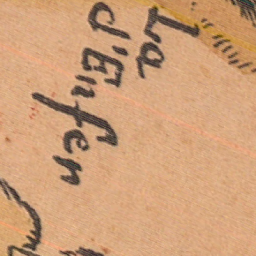 La
d'Enfer